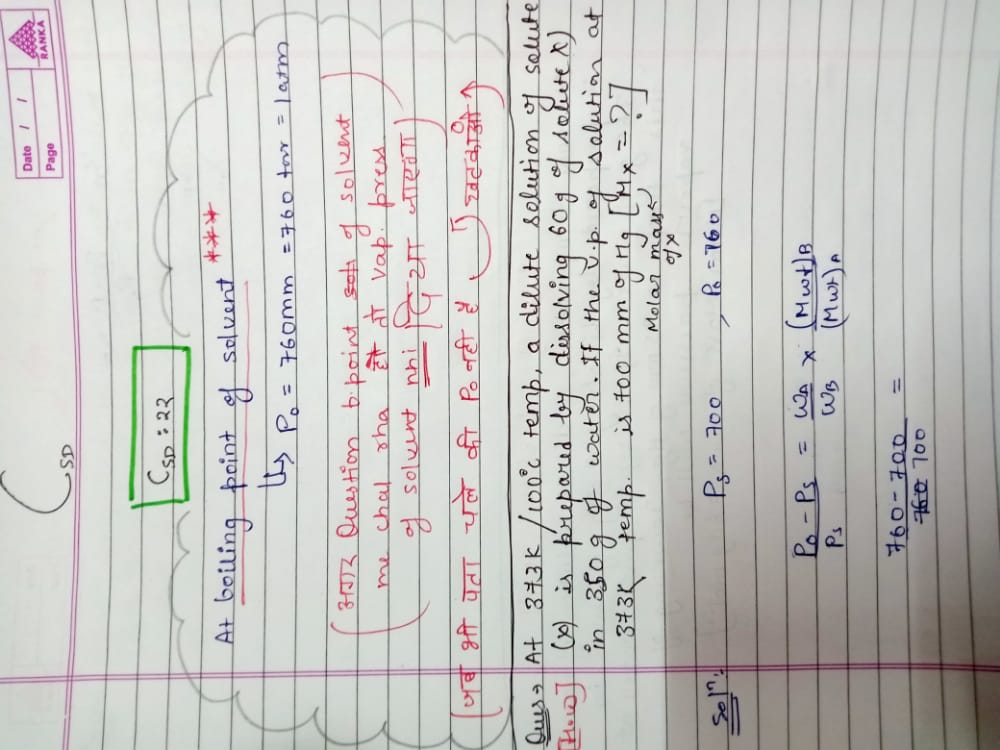 RANKA
Date / /
Page
CSD
CSD : 22
At boiling point of solvent ***
↳ P₀ = 760mm = 760 torr = 1atm
(अगर Question b.point of solvent
me chal rha हो तो vap. press.
of solvent nhi दिया जाएगा)
(जब भी पता चले की P₀ नहीं है
Ques→ At 373K/100°C temp, a dilute solution of solute
[H.W] (x) is prepared by dissolving 60g of solute x)
in 350g of water. If the v.p. of solution at
373K temp. is 700 mm of Hg [Mx = ?]
Molar mass
of x
Solⁿ. Ps = 700 , P₀ = 760
P₀ - Ps / Ps = WA / WB x (Mwt)B / (Mwt)A
760 - 700 / 700 =